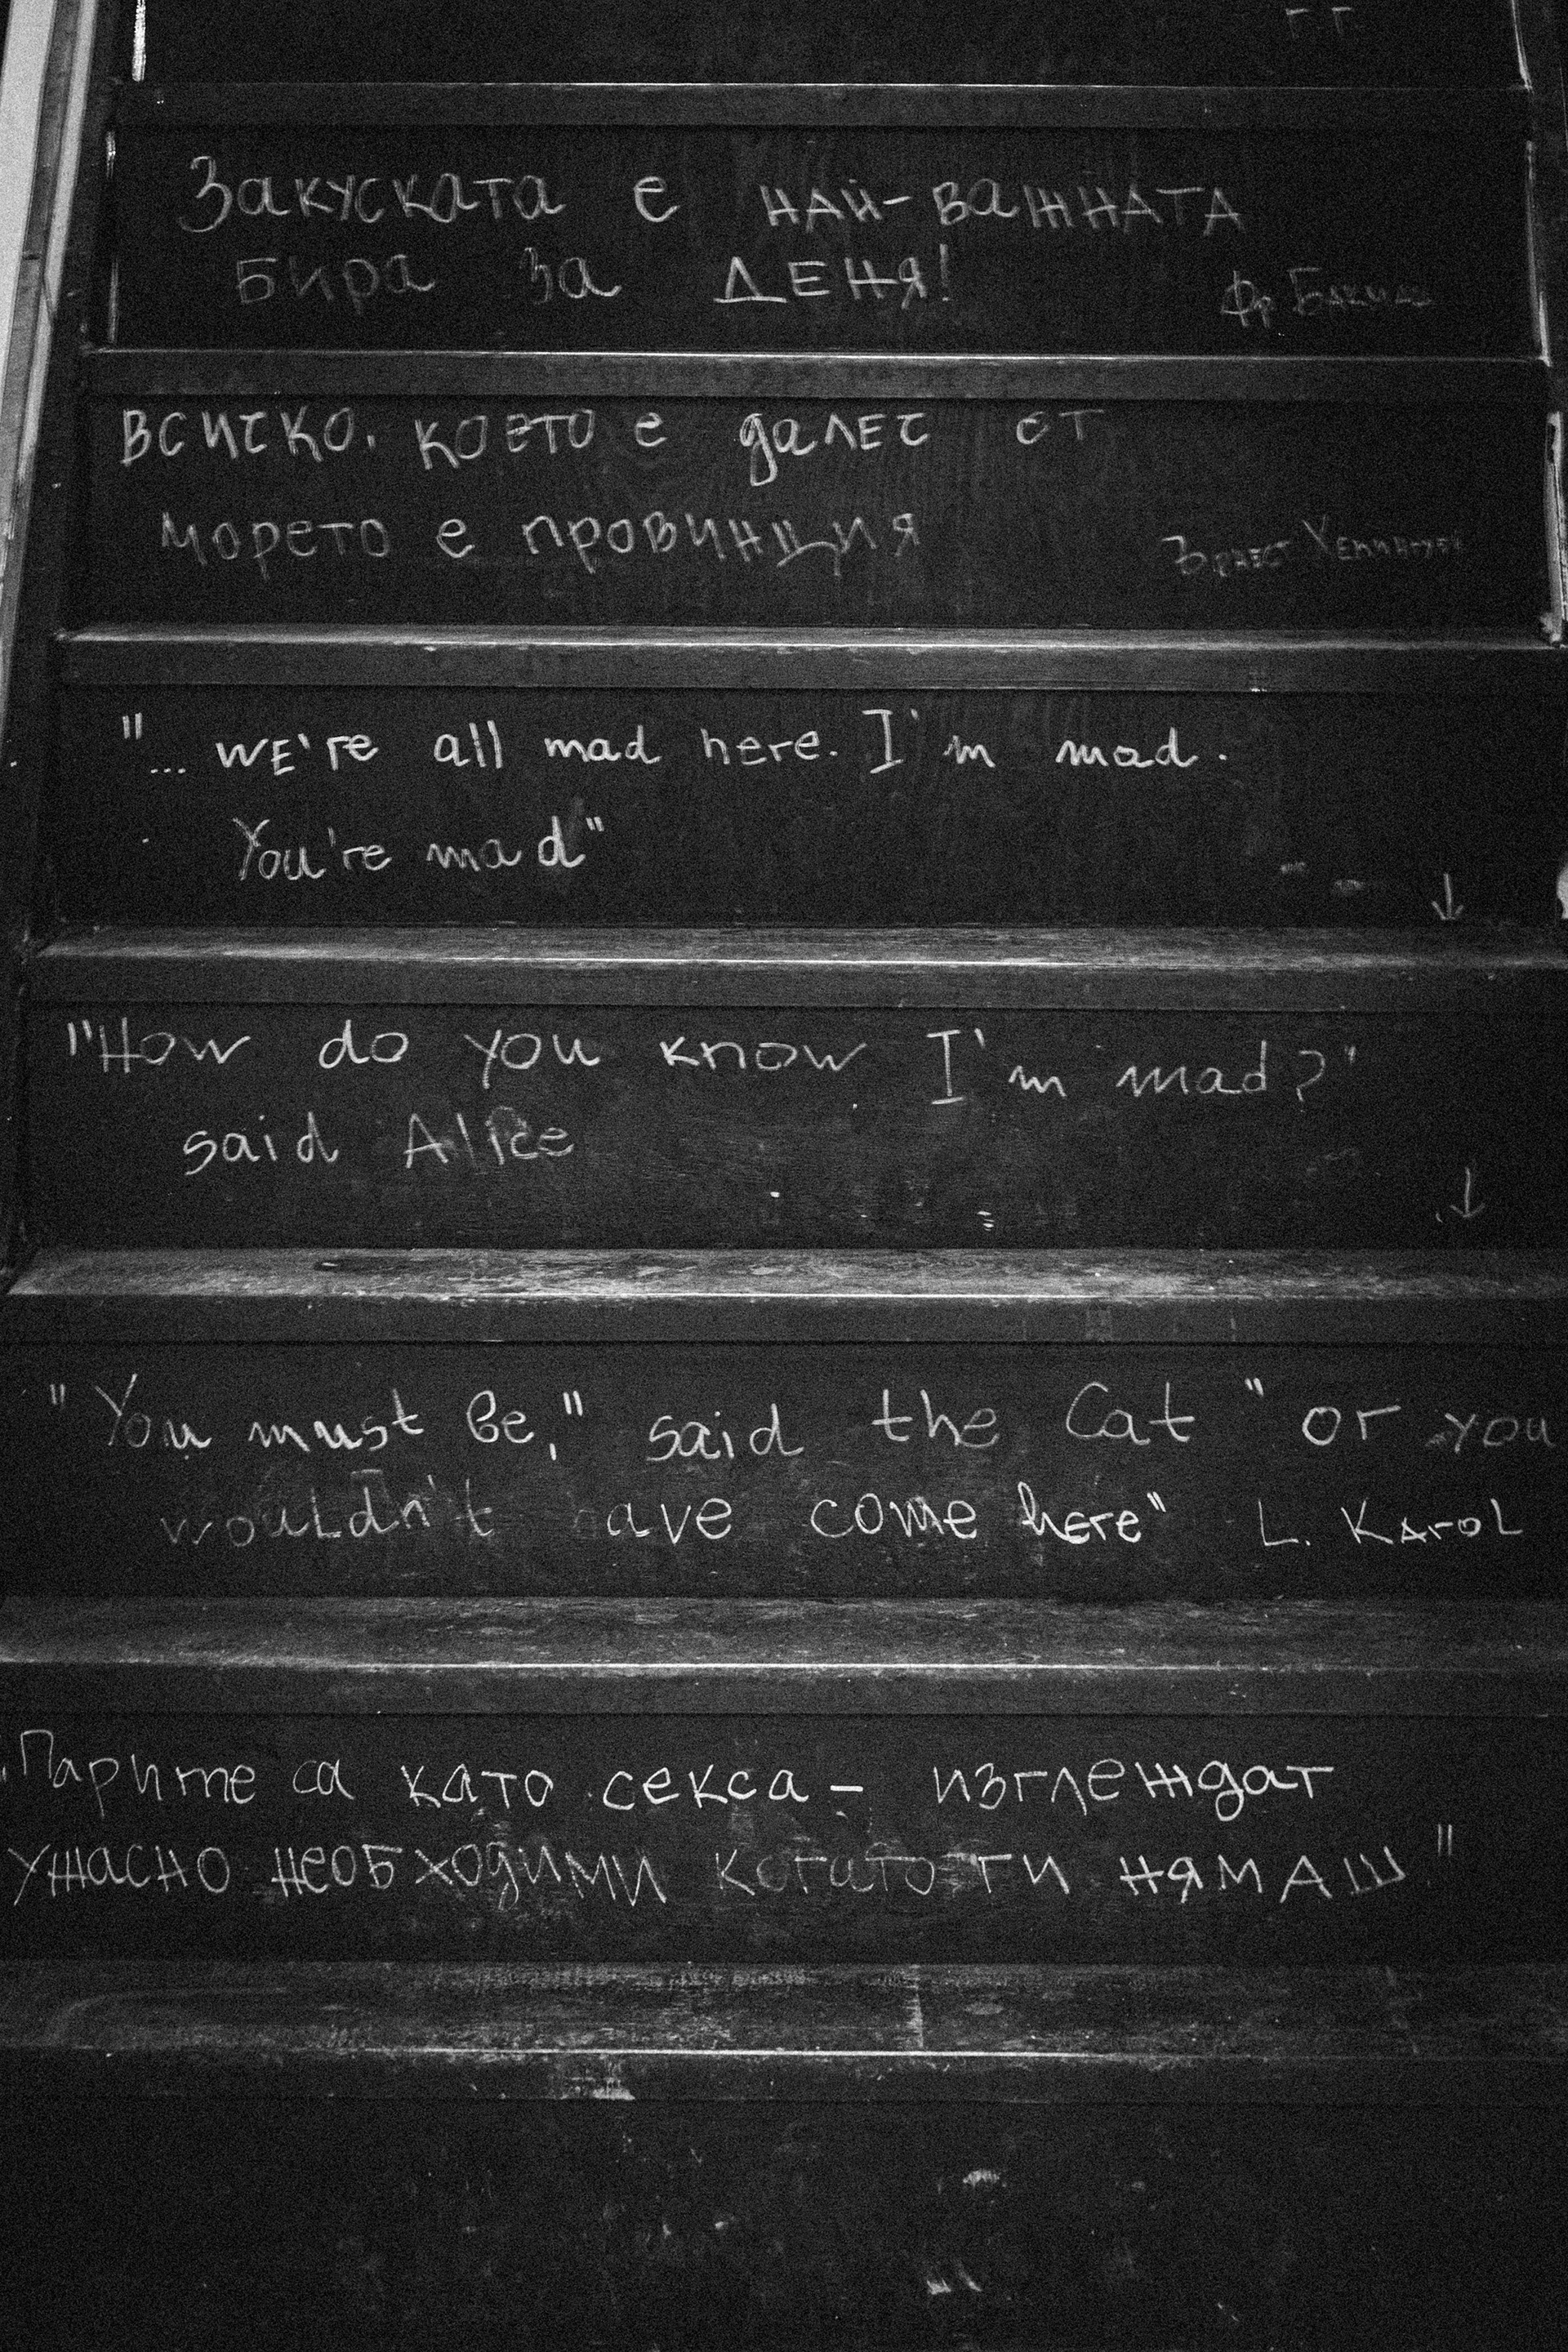 Закуската е най-важната
бира за деня!
Фр
всичко, което е далеч от
морето е провинция
Ърнест Хемингуей
"... wE're all mad here. I'm mad.
You're mad"
↓
"How do you know I'm mad?"
said Alice
↓
"You must be," said the Cat "or you
wouldn't have come here" L. KAroL
„Парите са като секса – изглеждат
ужасно необходими когато ги нямаш"